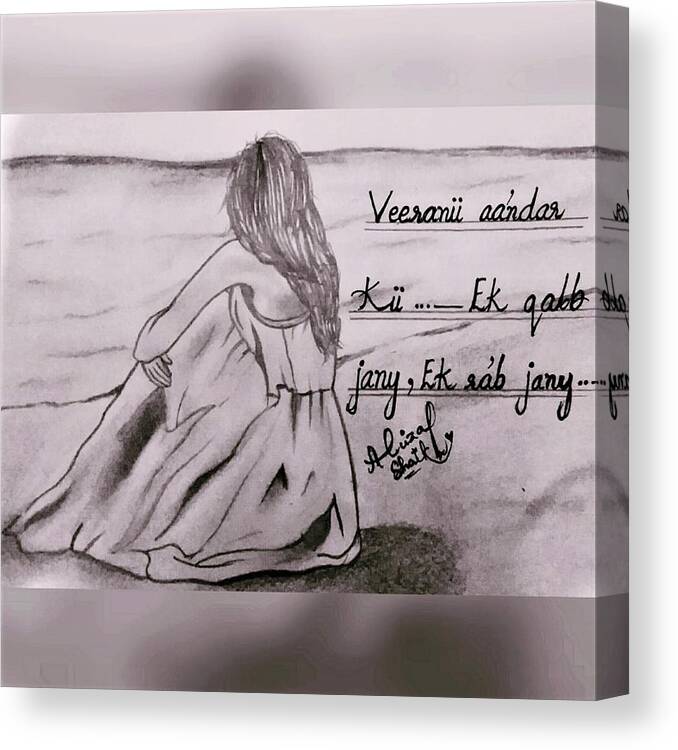 Veeranii aa'ndar
Kii ...— Ek qabb
jany, Ek ráb jany....
Alizal
Shaikh